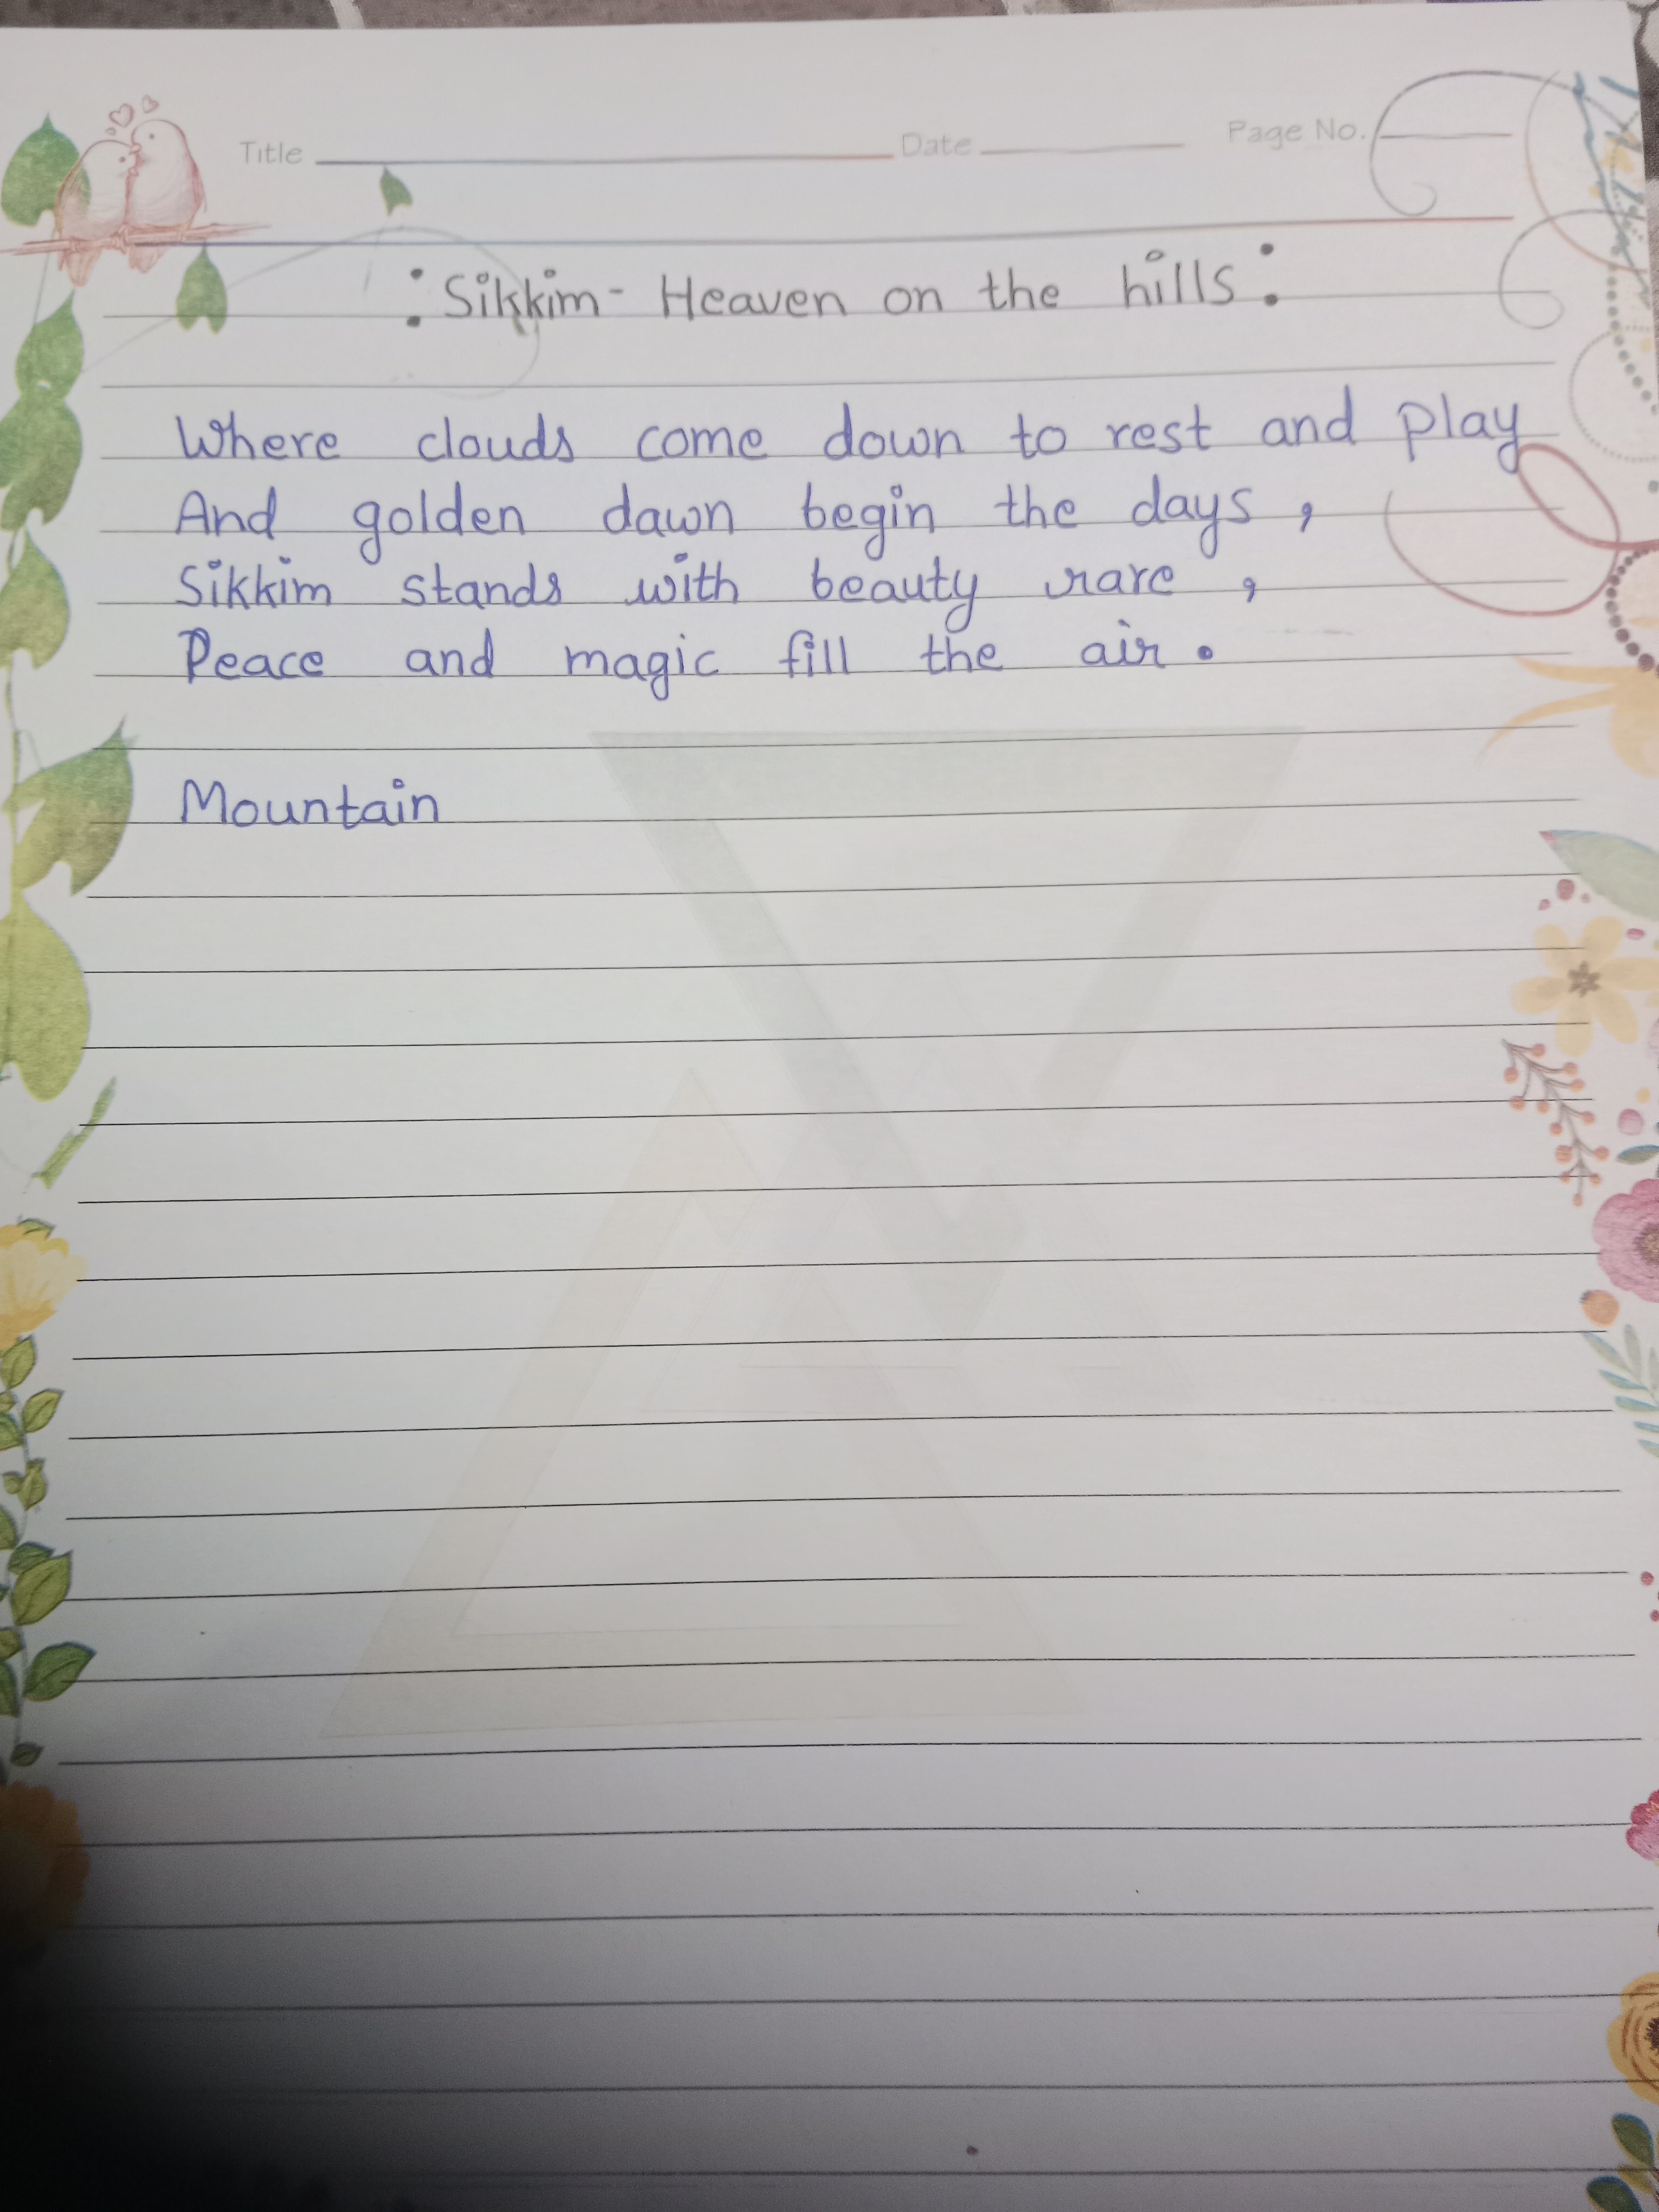 Title Date Page No.
:Sikkim- Heaven on the hills:
Where clouds come down to rest and play
And golden dawn begin the days,
Sikkim stands with beauty rare,
Peace and magic fill the air.
Mountain